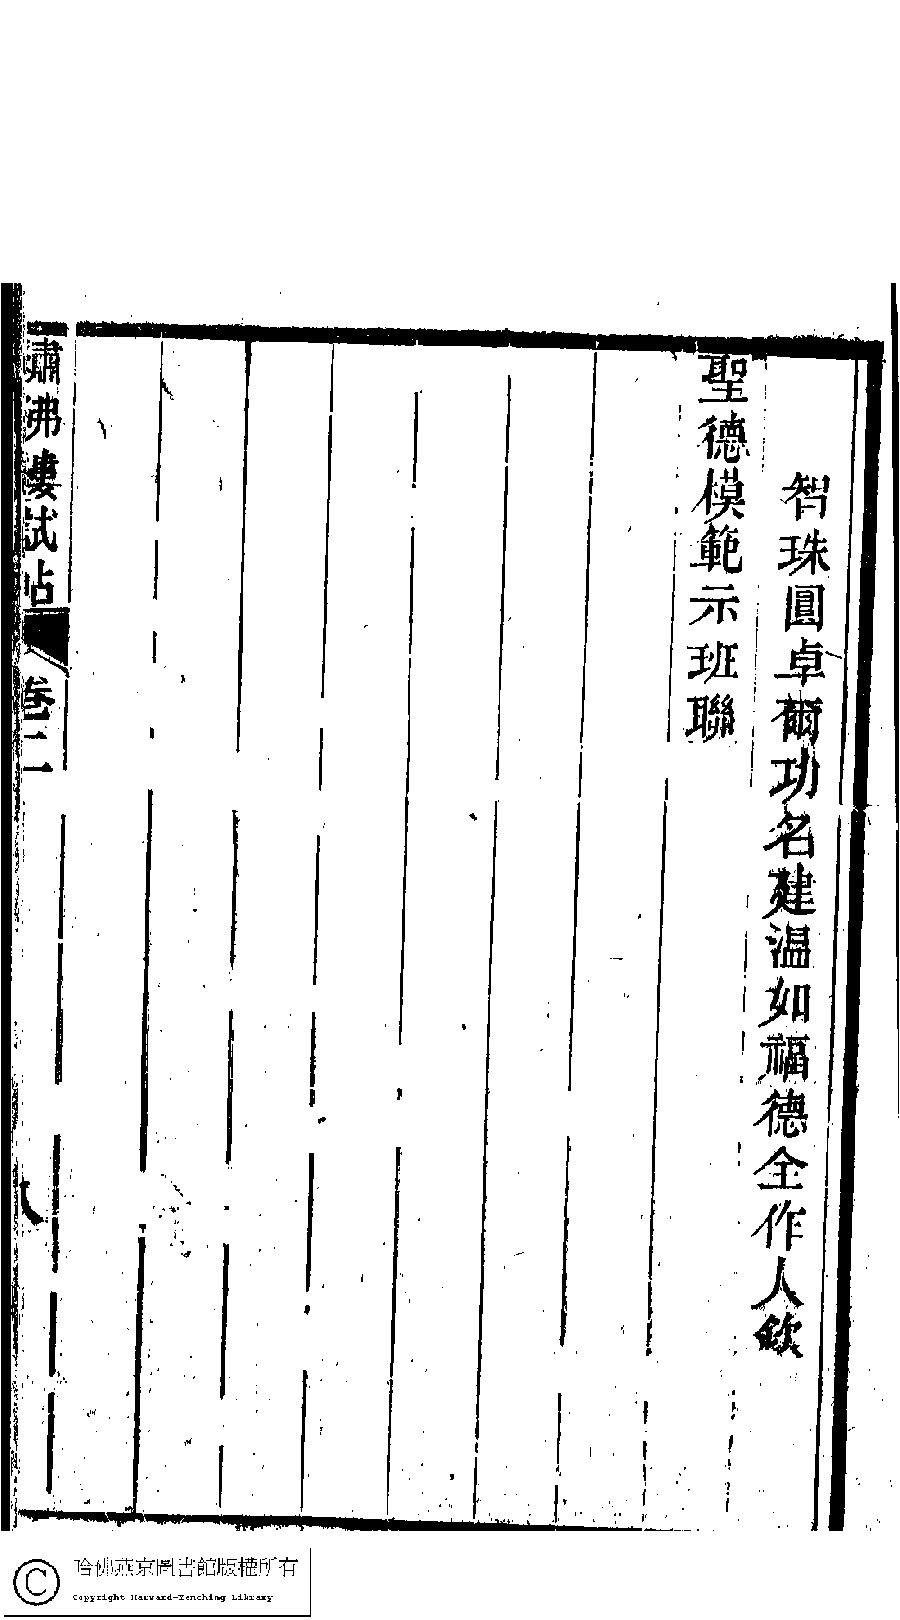 智珠圓卓爾功名建温如福德全作人欽
聖德模範示班聯
嘯沸樓試帖
卷二
八
哈佛燕京圖書館版權所有
Copyright Harvard-Yenching Library